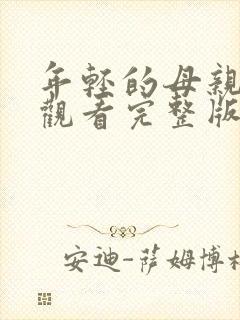 年轻的母亲
觀看完整版
安迪-萨姆博格